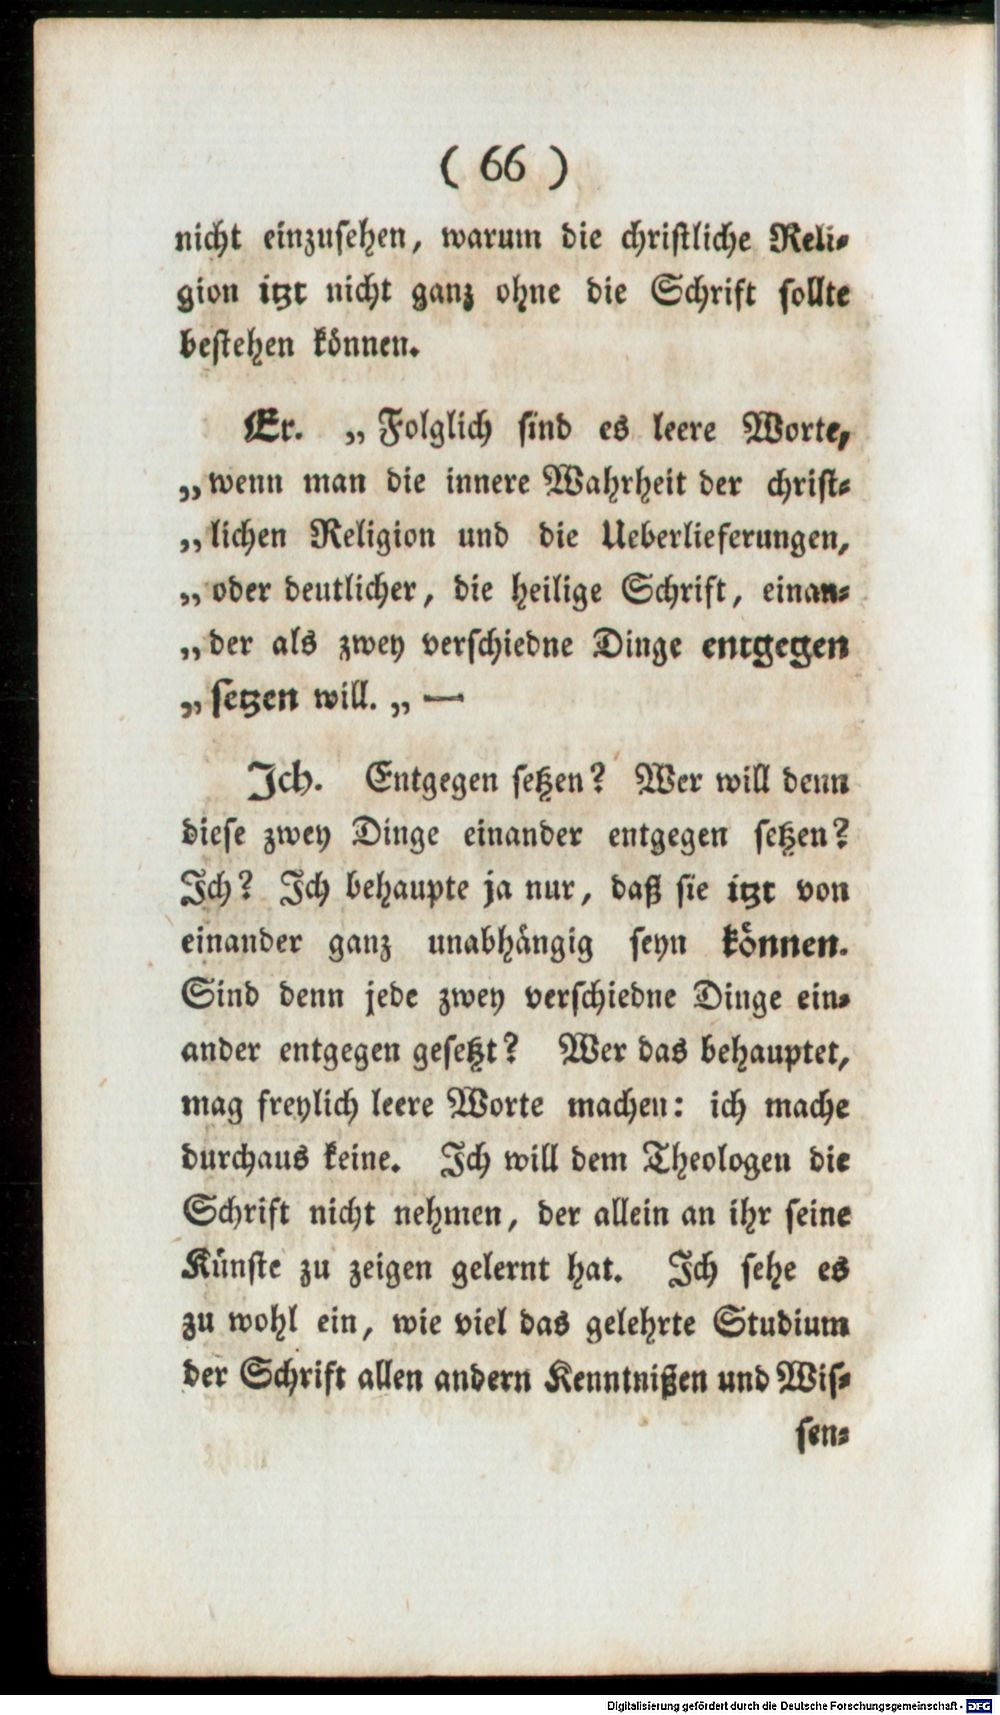 ( 66 )
nicht einzusehen, warum die christliche Reli-
gion itzt nicht ganz ohne die Schrift sollte
bestehen können.
Er. „ Folglich sind es leere Worte,
„ wenn man die innere Wahrheit der christ-
„ lichen Religion und die Ueberlieferungen,
„ oder deutlicher, die heilige Schrift, einan-
„ der als zwey verschiedne Dinge entgegen
„ setzen will. „ —
Ich. Entgegen setzen? Wer will denn
diese zwey Dinge einander entgegen setzen?
Ich? Ich behaupte ja nur, daß sie itzt von
einander ganz unabhängig seyn können.
Sind denn jede zwey verschiedne Dinge ein-
ander entgegen gesetzt? Wer das behauptet,
mag freylich leere Worte machen: ich mache
durchaus keine. Ich will dem Theologen die
Schrift nicht nehmen, der allein an ihr seine
Künste zu zeigen gelernt hat. Ich sehe es
zu wohl ein, wie viel das gelehrte Studium
der Schrift allen andern Kenntnißen und Wis-
sen-
Digitalisierung gefördert durch die Deutsche Forschungsgemeinschaft - DFG